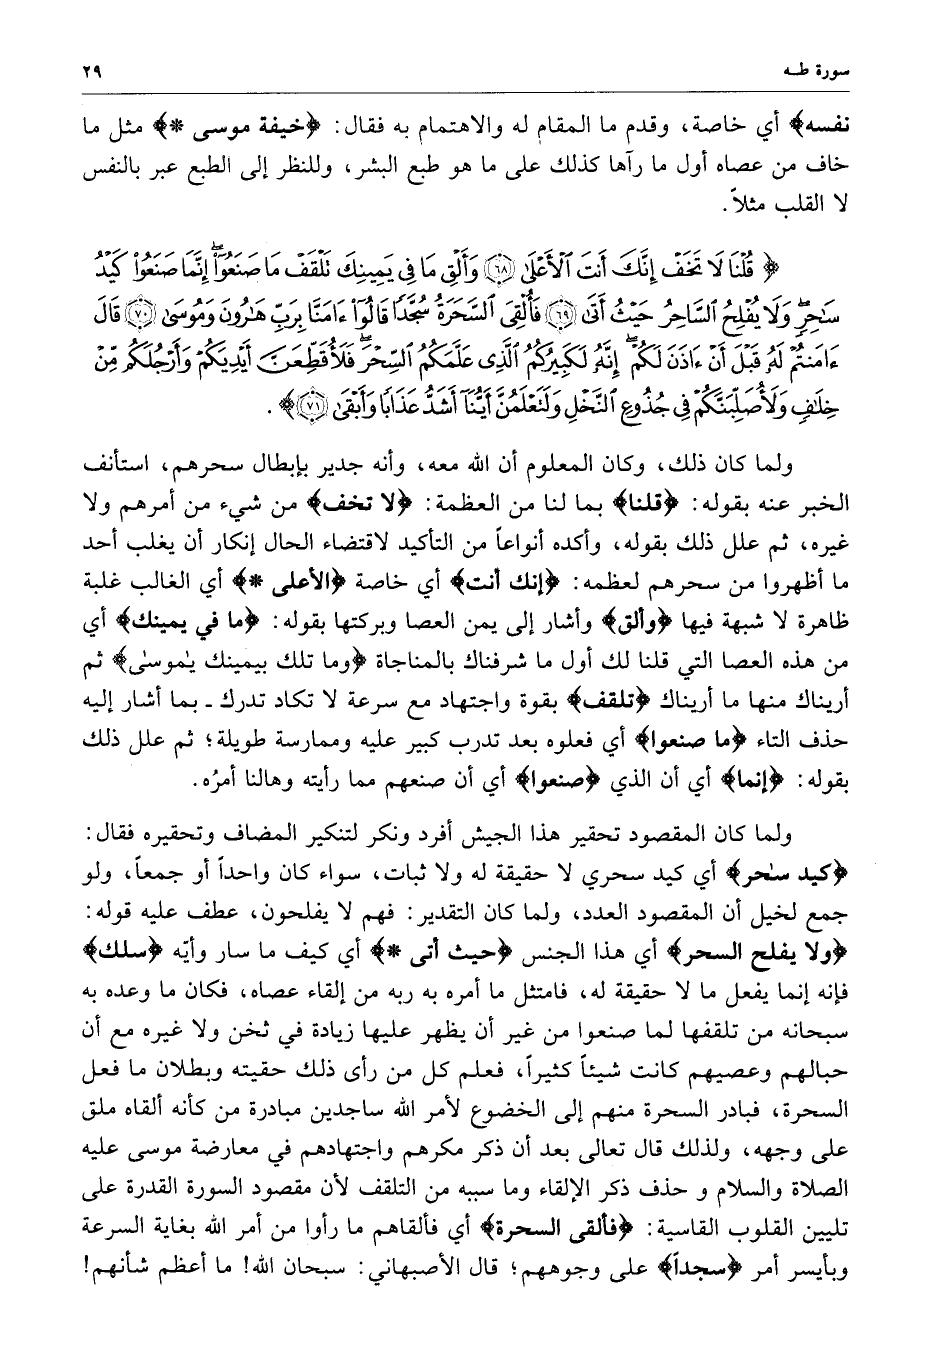 سورة طـه ٢٩
نفسه﴾ أي خاصة، وقدم ما المقام له والاهتمام به فقال: ﴿خيفة موسى *﴾ مثل ما
خاف من عصاه أول ما رآها كذلك على ما هو طبع البشر، وللنظر إلى الطبع عبر بالنفس
لا القلب مثلاً.
﴿ قُلْنَا لَا تَخَفْ إِنَّكَ أَنتَ ٱلْأَعْلَىٰ ﴿٦٨﴾ وَأَلْقِ مَا فِي يَمِينِكَ تَلْقَفْ مَا صَنَعُوٓا۟ إِنَّمَا صَنَعُوا۟ كَيْدُ
سَٰحِرٍ وَلَا يُفْلِحُ ٱلسَّاحِرُ حَيْثُ أَتَىٰ ﴿٦٩﴾ فَأُلْقِيَ ٱلسَّحَرَةُ سُجَّدًا قَالُوٓا۟ ءَامَنَّا بِرَبِّ هَٰرُونَ وَمُوسَىٰ ﴿٧٠﴾ قَالَ
ءَامَنتُمْ لَهُۥ قَبْلَ أَنْ ءَاذَنَ لَكُمْ إِنَّهُۥ لَكَبِيرُكُمُ ٱلَّذِى عَلَّمَكُمُ ٱلسِّحْرَ فَلَأُقَطِّعَنَّ أَيْدِيَكُمْ وَأَرْجُلَكُم مِّنْ
خِلَٰفٍ وَلَأُصَلِّبَنَّكُمْ فِي جُذُوعِ ٱلنَّخْلِ وَلَتَعْلَمُنَّ أَيُّنَآ أَشَدُّ عَذَابًا وَأَبْقَىٰ ﴿٧١﴾ ﴾.
ولما كان ذلك، وكان المعلوم أن الله معه، وأنه جدير بإبطال سحرهم، استأنف
الخبر عنه بقوله: ﴿قلنا﴾ بما لنا من العظمة: ﴿لا تخف﴾ من شيء من أمرهم ولا
غيره، ثم علل ذلك بقوله، وأكده أنواعاً من التأكيد لاقتضاء الحال إنكار أن يغلب أحد
ما أظهروا من سحرهم لعظمه: ﴿إنك أنت﴾ أي خاصة ﴿الأعلى *﴾ أي الغالب غلبة
ظاهرة لا شبهة فيها ﴿وألق﴾ وأشار إلى يمن العصا وبركتها بقوله: ﴿ما في يمينك﴾ أي
من هذه العصا التي قلنا لك أول ما شرفناك بالمناجاة ﴿وما تلك بيمينك يٰموسىٰ﴾ ثم
أريناك منها ما أريناك ﴿تلقف﴾ بقوة واجتهاد مع سرعة لا تكاد تدرك ـ بما أشار إليه
حذف التاء ﴿ما صنعوا﴾ أي فعلوه بعد تدرب كبير عليه وممارسة طويلة؛ ثم علل ذلك
بقوله: ﴿إنما﴾ أي أن الذي ﴿صنعوا﴾ أي أن صنعهم مما رأيته وهالنا أمرُه.
ولما كان المقصود تحقير هذا الجيش أفرد ونكر لتنكير المضاف وتحقيره فقال:
﴿كيد سٰحر﴾ أي كيد سحري لا حقيقة له ولا ثبات، سواء كان واحداً أو جمعاً، ولو
جمع لخيل أن المقصود العدد، ولما كان التقدير: فهم لا يفلحون، عطف عليه قوله:
﴿ولا يفلح السحر﴾ أي هذا الجنس ﴿حيث أتى *﴾ أي كيف ما سار وأيّه ﴿سلك﴾
فإنه إنما يفعل ما لا حقيقة له، فامتثل ما أمره به ربه من إلقاء عصاه، فكان ما وعده به
سبحانه من تلقفها لما صنعوا من غير أن يظهر عليها زيادة في ثخن ولا غيره مع أن
حبالهم وعصيهم كانت شيئاً كثيراً، فعلم كل من رأى ذلك حقيته وبطلان ما فعل
السحرة، فبادر السحرة منهم إلى الخضوع لأمر الله ساجدين مبادرة من كأنه ألقاه ملق
على وجهه، ولذلك قال تعالى بعد أن ذكر مكرهم واجتهادهم في معارضة موسى عليه
الصلاة والسلام و حذف ذكر الإلقاء وما سببه من التلقف لأن مقصود السورة القدرة على
تليين القلوب القاسية: ﴿فألقى السحرة﴾ أي فألقاهم ما رأوا من أمر الله بغاية السرعة
وبأيسر أمر ﴿سجداً﴾ على وجوههم؛ قال الأصبهاني: سبحان الله! ما أعظم شأنهم!